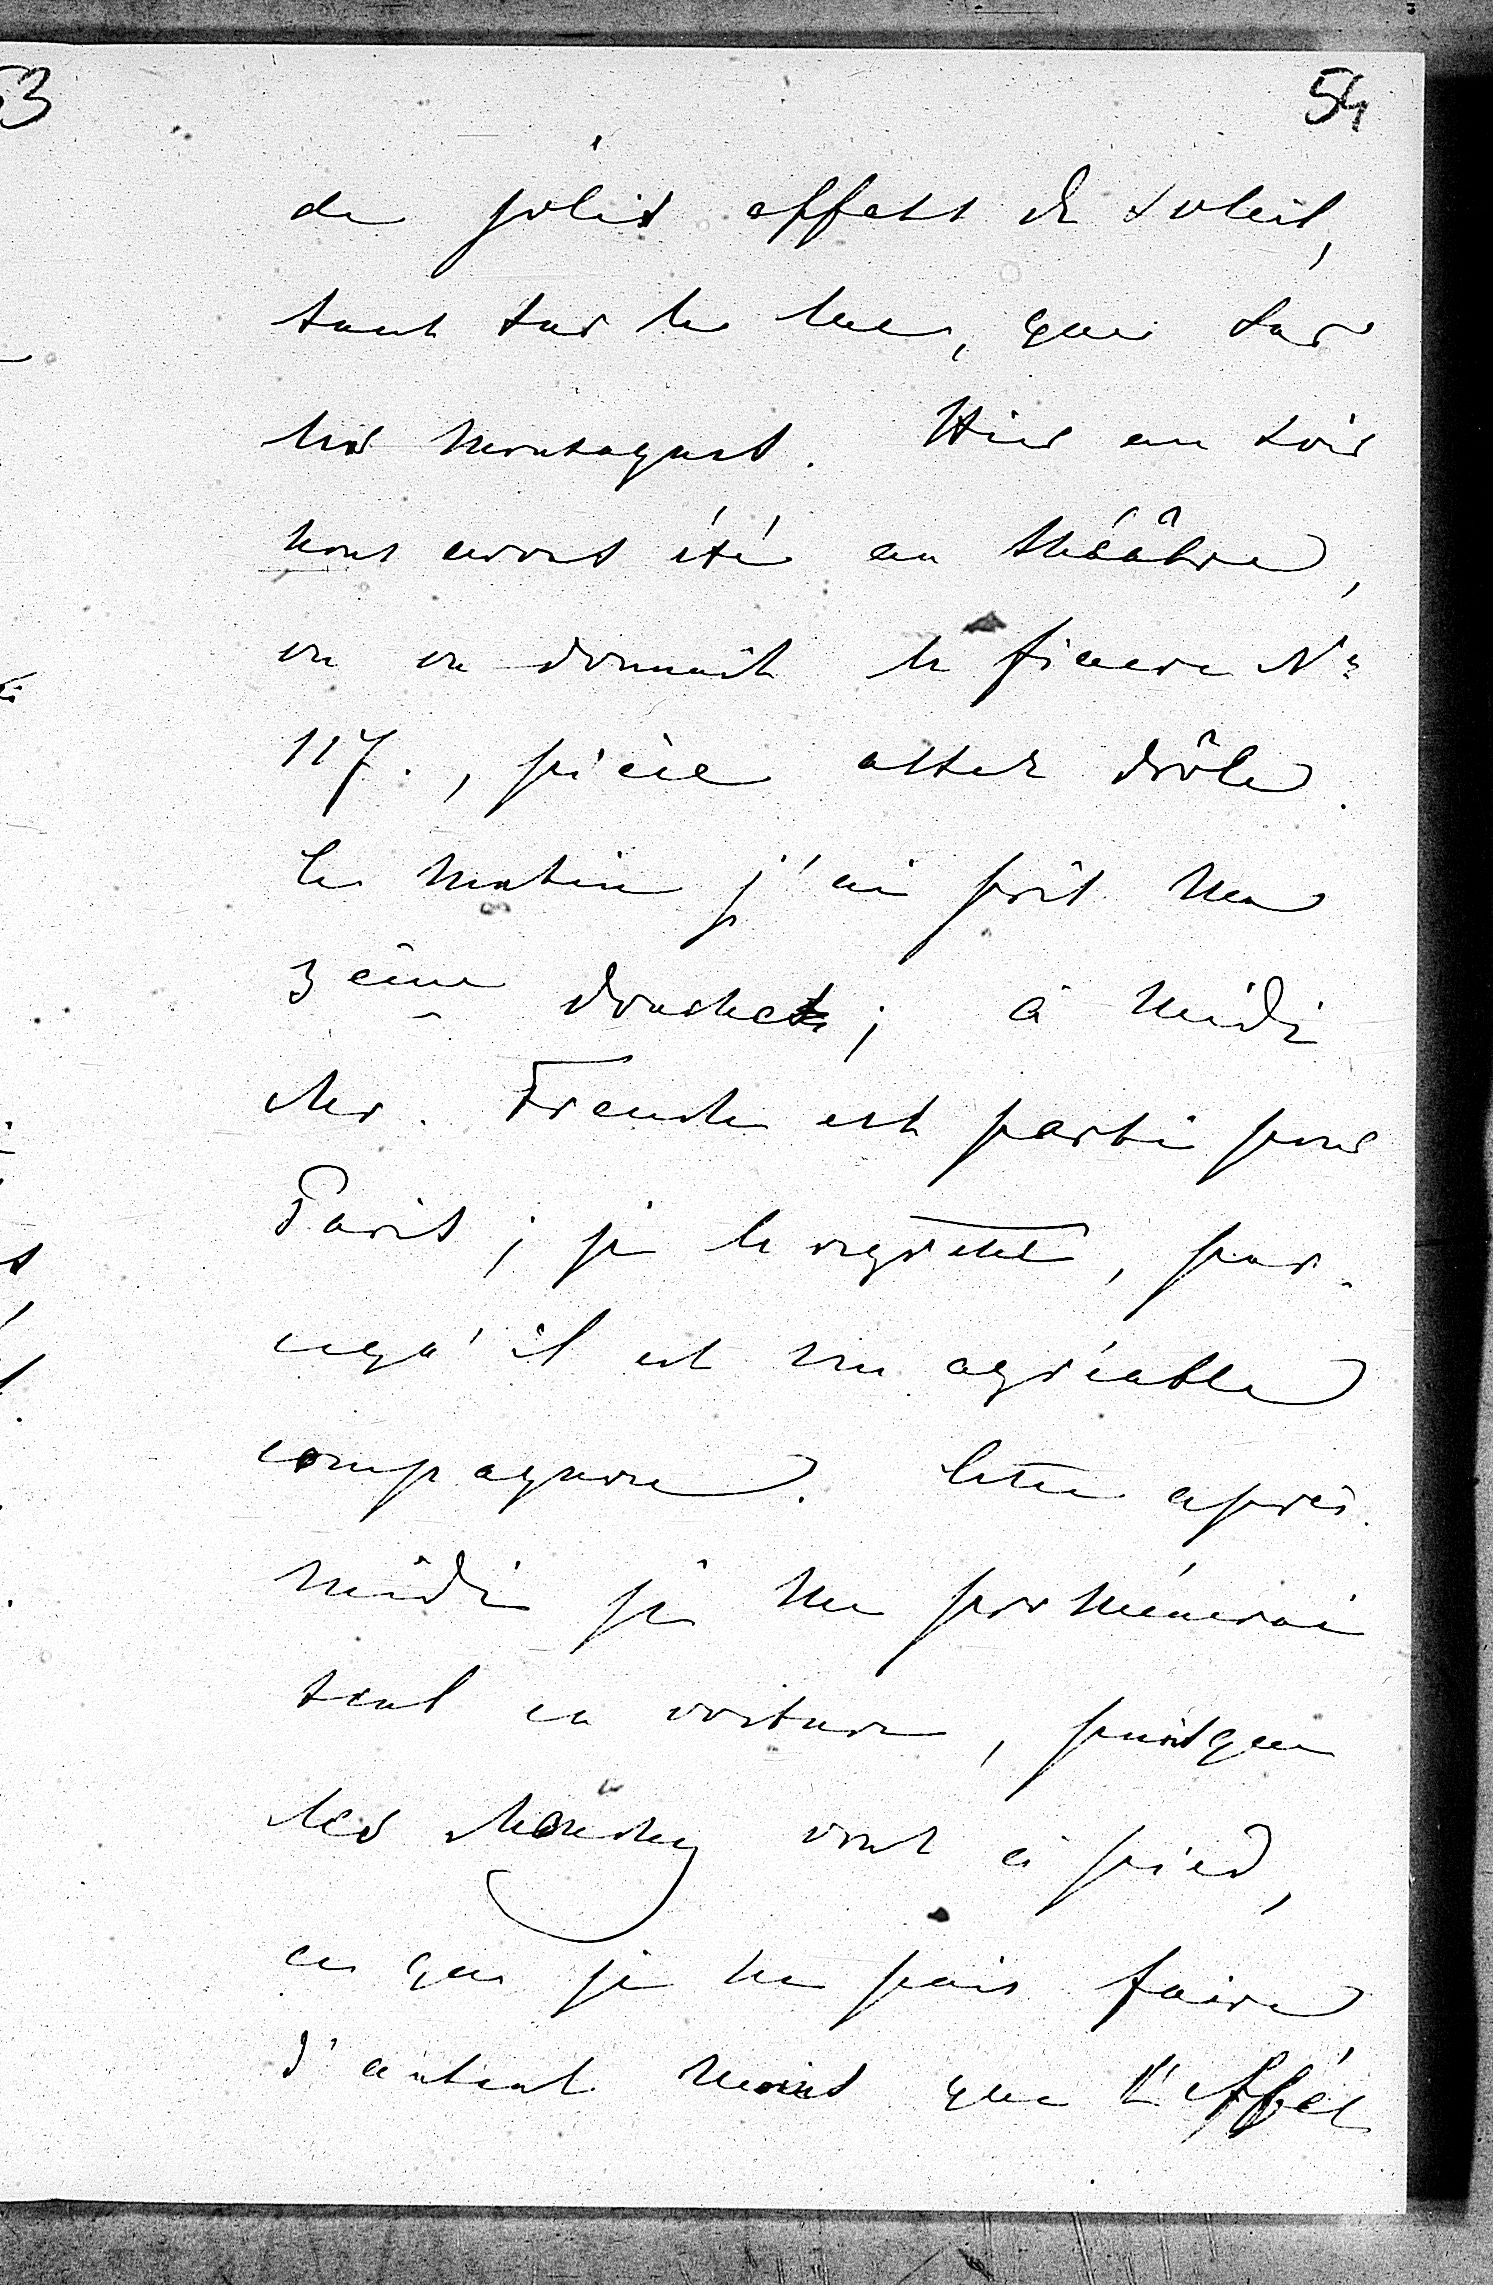 53
54
de jolis effets de soleil,
tant sur le lac, que sur
les montagnes. Hier au soir
nous avons été au théâtre,
on en donnait le fiacre No
117., pièce assez drôle.
Ce matin j'ai pris ma
3 ème douche; à midi
Mr. Franck est parti pour
Paris; je le regrette, par-
cequ'il est un agréable
compagnon. Cette après-
midi je me proménerai
seul en voiture, puisque
les vont à pied,
ce que je ne puis faire
d'autant moins que l'effet